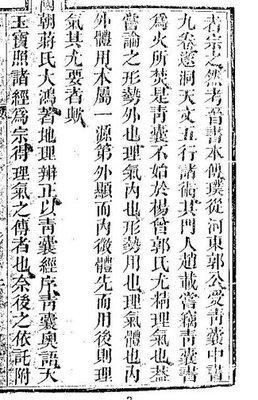 者宗之然考晉書本傳璞從河東郭公受靑囊中書
九卷遂洞天文五行諸術其門人趙載嘗竊靑囊書
爲火所焚是靑囊不始於楊曾郭氏尤精理氣也蓋
嘗論之形勢外也理氣內也形勢用也理氣體也內
外體用本屬一源第外顯而內微體先而用後則理
氣其尤要者歟
國朝蔣氏大鴻著地理辨正以靑囊經序靑囊奥語天
玉寶照諸經爲宗得理氣之傳者也奈後之依託附